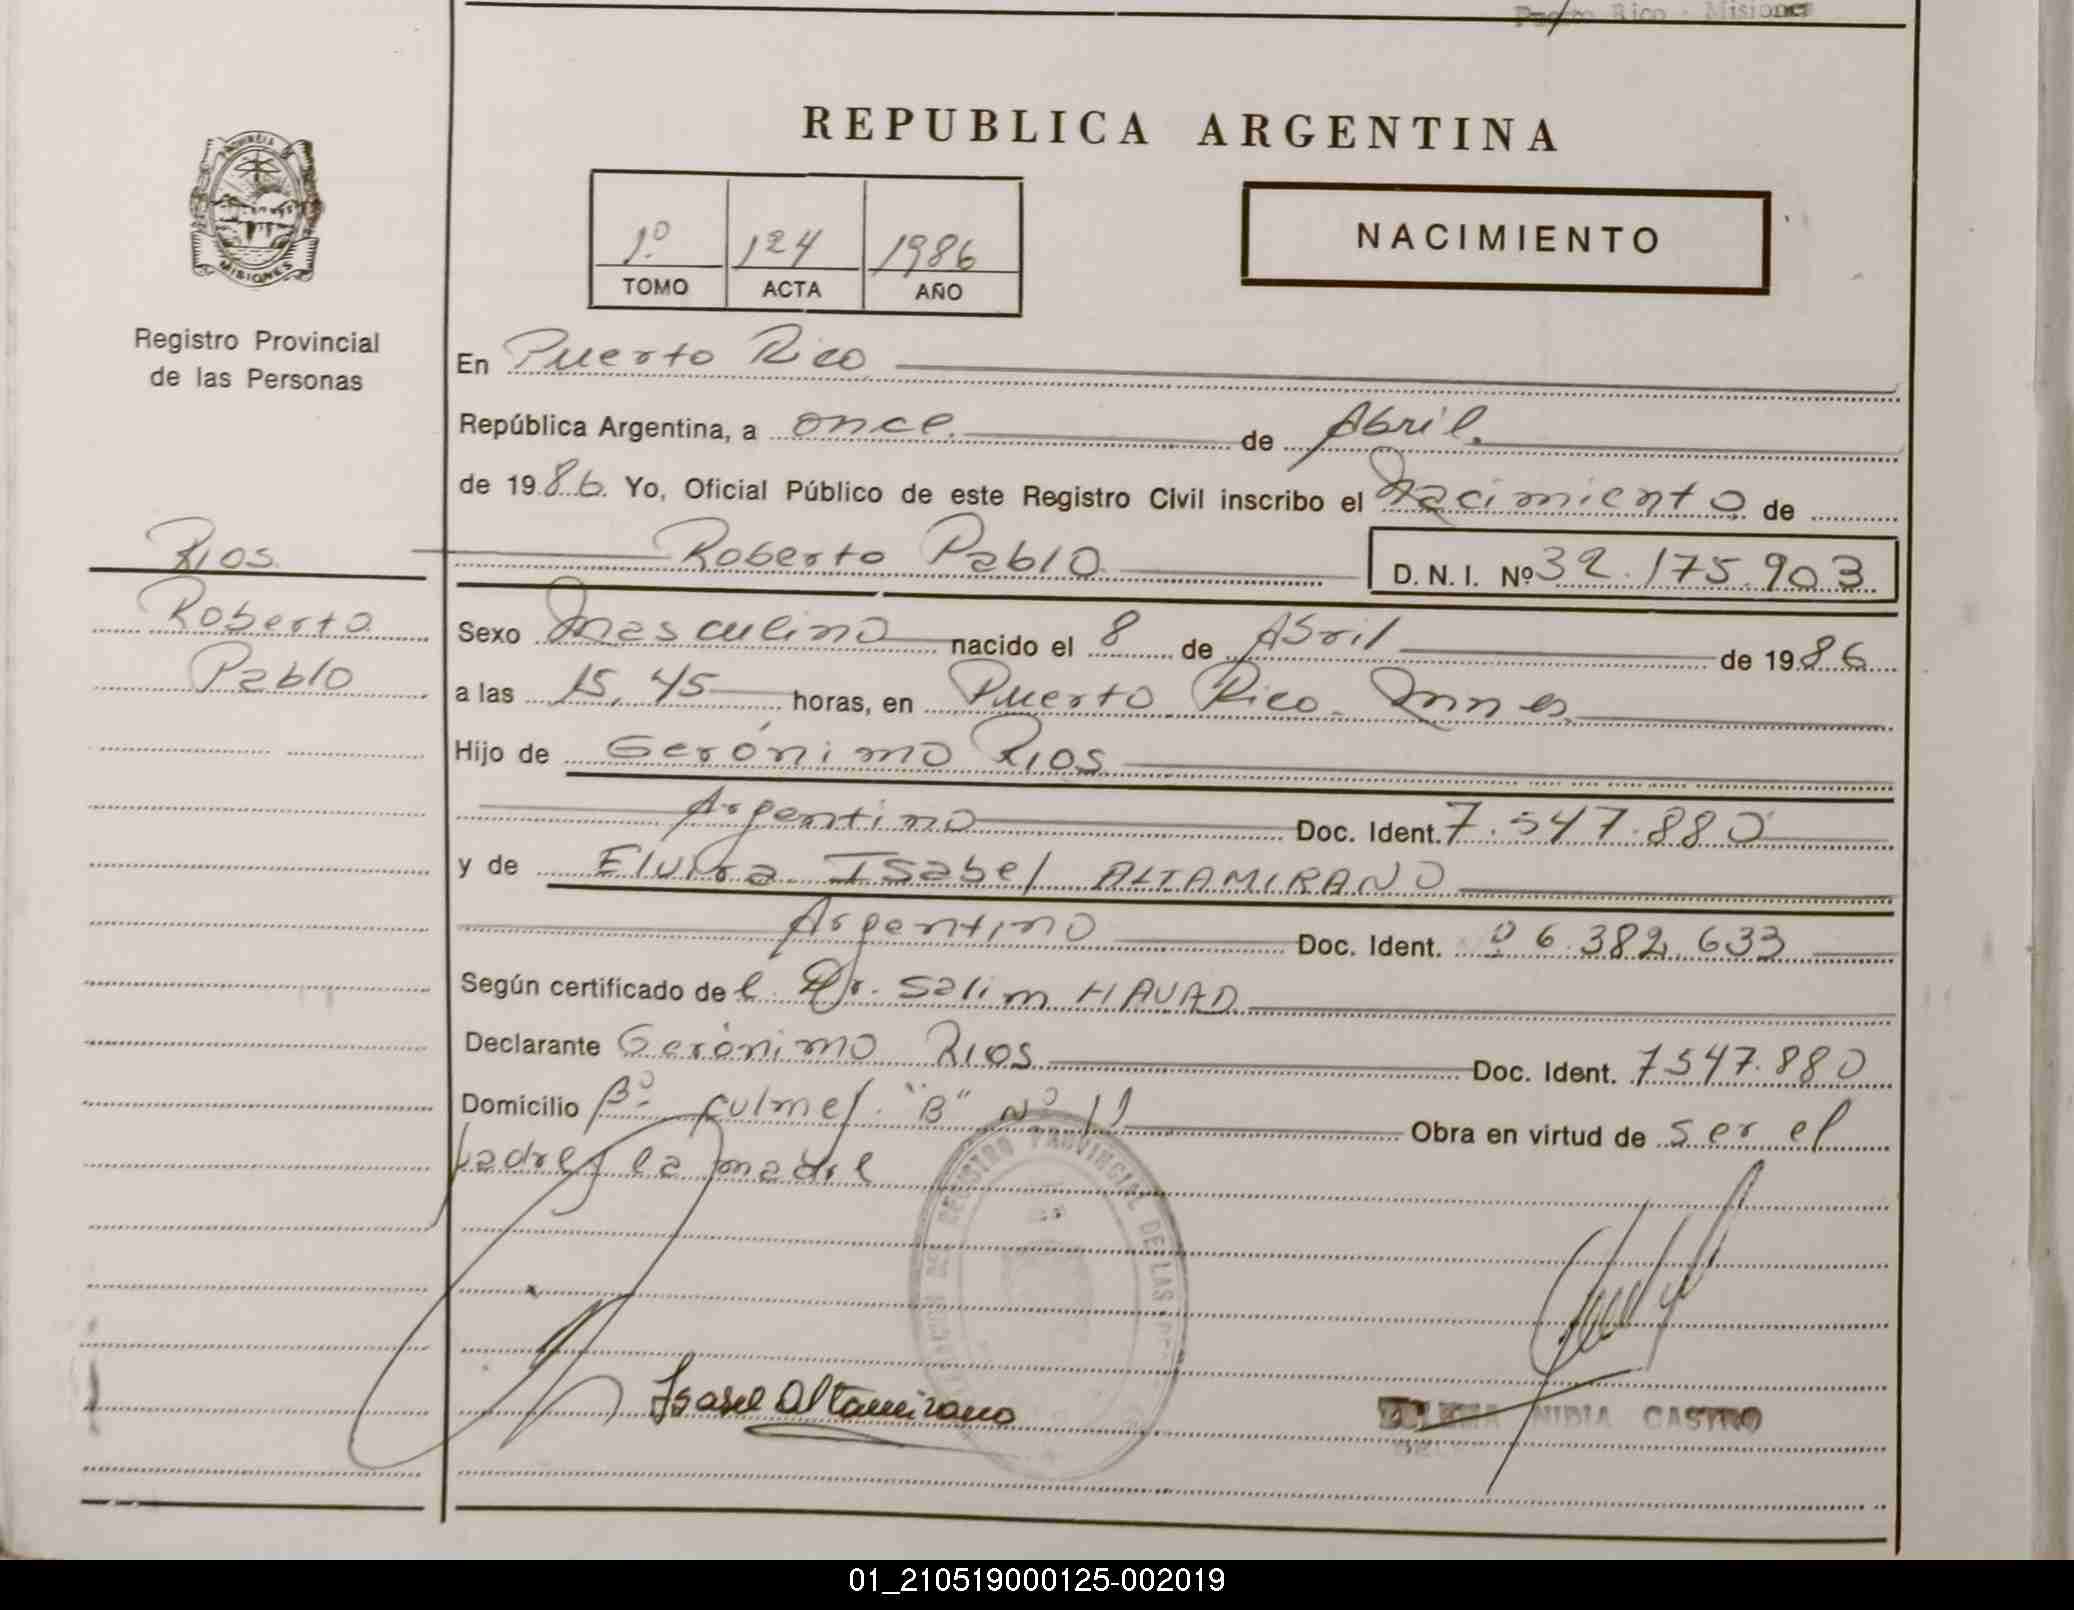 Puerto Rico - Misiones
REPUBLICA ARGENTINA
PROVINCIA DE
MISIONES
Registro Provincial
de las Personas
1º 124 1986
TOMO ACTA AÑO
NACIMIENTO
En Puerto Rico
República Argentina, a once de Abril
de 1986 Yo, Oficial Público de este Registro Civil inscribo el Nacimiento de
Rios
Roberto
Pablo
Roberto Pablo D. N. I. Nº 32.175.903
Sexo Masculino nacido el 8 de Abril de 1986
a las 15,45 horas, en Puerto Rico. Mnes
Hijo de Gerónimo Rios
Argentino Doc. Ident. 7.547.880
y de Elvira Isabel ALTAMIRANO
Argentino Doc. Ident. 6.382.633
Según certificado del Dr. Salim HAUAD
Declarante Gerónimo Rios Doc. Ident. 7547.880
Domicilio Bº Culmey "B" Nº 11 Obra en virtud de ser el
padre y la madre
REGISTRO PROVINCIAL DE LAS
Isabel Altamirano
NIDIA CASTRO
01_210519000125-002019